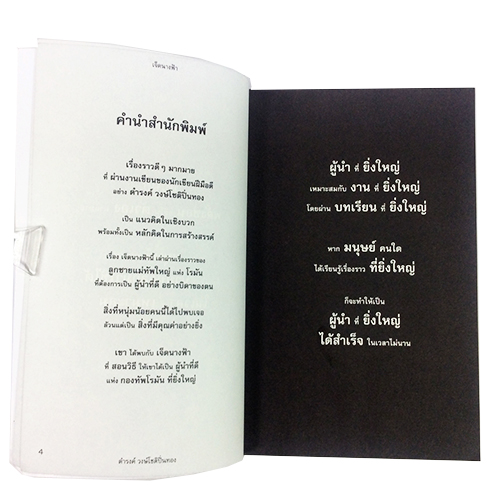 เจ็ดนางฟ้า
คำนำสำนักพิมพ์
เรื่องราวดี ๆ มากมาย
ที่ ผ่านงานเขียนของนักเขียนฝีมือดี
อย่าง ดำรงค์ วงษ์โชติปิ่นทอง
เป็น แนวคิดในเชิงบวก
พร้อมทั้งเป็น หลักคิดในการสร้างสรรค์
เรื่อง เจ็ดนางฟ้านี้ เล่าผ่านเรื่องราวของ
ลูกชายแม่ทัพใหญ่ แห่ง โรมัน
ที่ต้องการเป็น ผู้นำที่ดี อย่างบิดาของตน
สิ่งที่หนุ่มน้อยคนนี้ได้ไปพบเจอ
ล้วนแต่เป็น สิ่งที่มีคุณค่าอย่างยิ่ง
เขา ได้พบกับ เจ็ดนางฟ้า
ที่ สอนวิธี ให้เขาได้เป็น ผู้นำที่ดี
แห่ง กองทัพโรมัน ที่ยิ่งใหญ่
4
ดำรงค์ วงษ์โชติปิ่นทอง
ผู้นำ ที่ ยิ่งใหญ่
เหมาะสมกับ งาน ที่ ยิ่งใหญ่
โดยผ่าน บทเรียน ที่ ยิ่งใหญ่
หาก มนุษย์ คนใด
ได้เรียนรู้เรื่องราว ที่ยิ่งใหญ่
ก็จะทำให้เป็น
ผู้นำ ที่ ยิ่งใหญ่
ได้สำเร็จ ในเวลาไม่นาน